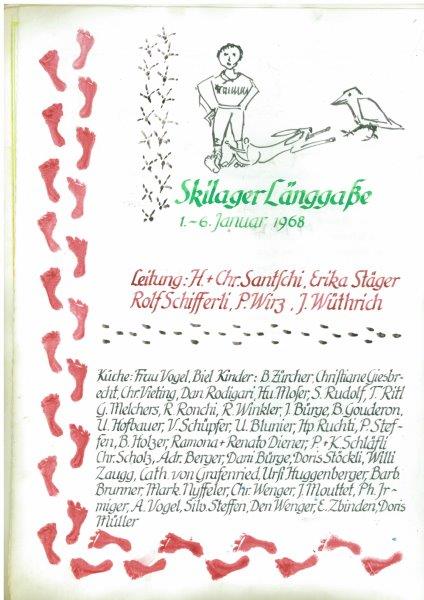 Skilager Länggaße
1.-6. Januar 1968
Leitung: H + Chr. Santschi, Erika Stäger
Rolf Schifferli, P. Wirz, J. Wüthrich
Küche: Frau Vogel, Biel Kinder: B. Zürcher, Christiane Giesbr-
echt, Chr. Vieting, Dan. Rodigari, Hu. Moser, S. Rudolf, T. Ritl
G. Melchers, R. Ronchi, R. Winkler, J. Bürge, B. Gouderon,
U. Hofbauer, V. Schüpfer, U. Blunier, Hp Ruchti, P. Stef-
fen, B. Holzer, Ramona + Renato Diener, P. + K. Schläfli
Chr. Scholz, Adr. Berger, Dani Bürge, Doris Stöckli, Willi
Zaugg, Cath. von Grafenried, Urs Huggenberger, Barb.
Brunner, Mark. Nyffeler, Chr. Wenger, J. Mouttet, Ph. Jr-
miger, A. Vogel, Silv. Steffen, Den Wenger, E. Zbinden, Doris
Müller